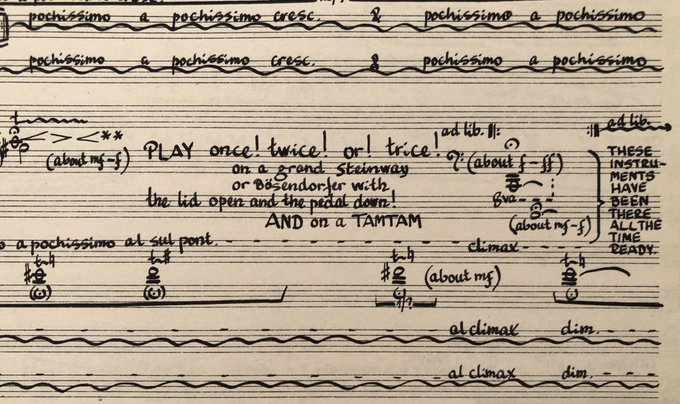 pochissimo a pochissimo cresc. & pochissimo a pochissimo
pochissimo a pochissimo cresc. & pochissimo a pochissimo
< > < **
(about mf-f)
PLAY once! twice! or! trice!
on a grand Steinway
or Bösendorfer with
the lid open and the pedal down!
AND on a TAMTAM
ad lib.
(about f-ff)
8va
(about mf-f)
ad lib.
THESE
INSTRU-
MENTS
HAVE
BEEN
THERE
ALL THE
TIME
READY.
o a pochissimo al sul pont. climax
(about mf)
1/2
al climax dim.
al climax dim.